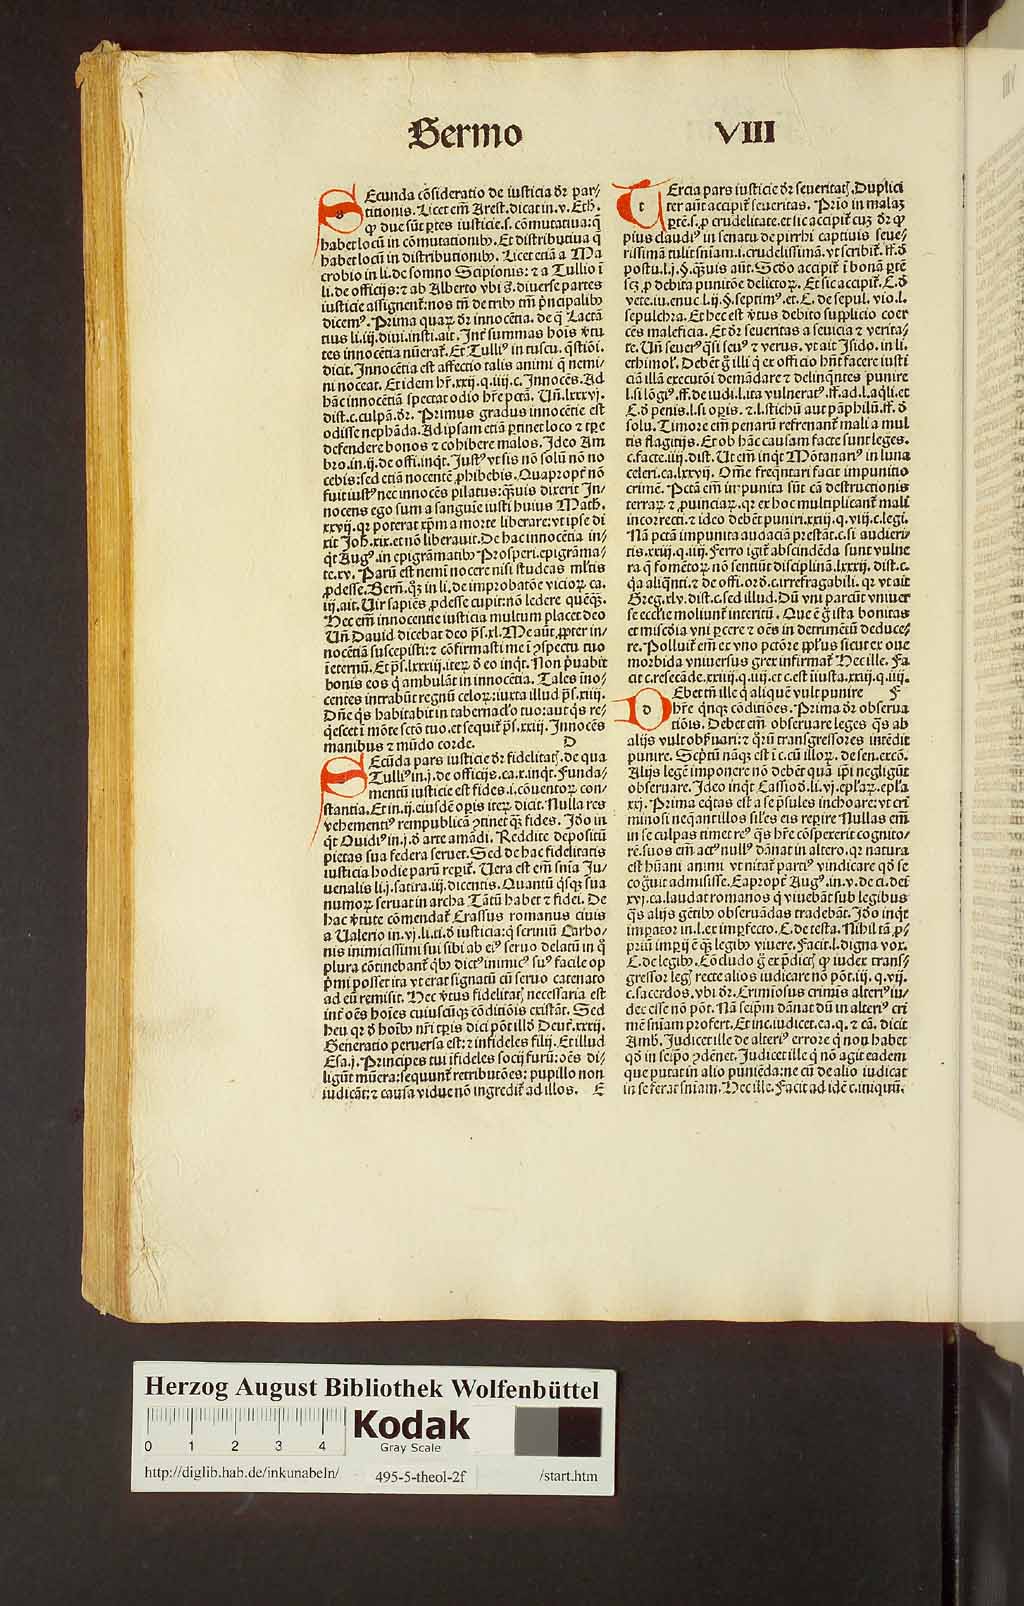 Sermo VIII
SEcunda cōsideratio de iusticia dr par/
titionis. Licet em̄ Arest. dicat in .v. Eth.
ꝙ due sūt ꝑtes iusticie .s. cōmutatiua: q̄
habet locū in cōmutationibꝰ. Et distributiua q̄
habet locū in distributionibꝰ. Licet etiā a Ma
crobio in li. de somno Scipionis: ⁊ a Tullio ī
li. de officijs: ⁊ ab Alberto vbi s̄. diuerse partes
iusticie assignent̄: nos tn̄ de tribꝰ tm̄ pͥncipalibꝰ
dicemꝰ. Prima quaꝝ dr innocētia. de q̄ Lactā
tius li. iij. diui. insti. ait. Int̄ summas hoīs v̓tu
tes innocētia nūerat̄. Et Tulliꝰ in tuscu. q̄stiōi.
dicit. Innocētia est affectio talis animi q̄ nemi/
ni noceat. Et idem hr̄ .xxij. q. iiij. c. Innocēs. Ad
hāc innocētiā spectat odio hr̄e pctā. Uñ .lxxxvj.
dist. c. culpā. dr. Primus gradus innocētie est
odisse nephāda. Ad ipsam etiā ꝑtinet loco ⁊ tꝑe
defendere bonos ⁊ cohibere malos. Ideo Am
bro. in .ij. de offi. inqt. Justꝰ vt sis nō solū nō no
cebis: sed etiā nocentē ꝓhibebis. Quapropt̄ nō
fuit iustꝰ nec innocēs pilatus: q̄uis dixerit In/
nocens ego sum a sanguīe iusti huius Math.
xxvij. qr poterat xp̄m a morte liberare: vt ipse di
xit Joh. xix. et nō liberauit. De hac innocētia in/
qt Augꝰ. in epigrāmatibꝰ Prosperi. epigrāma/
te .xv. Parū est nemī nocere nisi studeas ml̓tis
ꝓdesse. Bern. qꝫ in li. de improbatōe vicioꝝ ca.
iij. ait. Uir sapiēs ꝓdesse cupit: nō ledere quēqꝫ.
Hec em̄ innocentie iusticia multum placet deo
Uñ Dauid dicebat deo ps̄. xl. Me aūt ꝓpter in/
nocētiā suscepisti: ⁊ cōfirmasti me ī ꝯspectu tuo
ī eternū. Et ps̄. lxxxiii. iteꝝ d̄ eo inqt. Non pͥuabit
bonis eos q̄ ambulāt in innocētia. Tales īno/
centes intrabūt regnū celoꝝ: iuxta illud ps̄. xiiij.
Dn̄e q̄s habitabit in tabernac̓lo tuo: aut q̄s re/
q̄escet ī mōte scto tuo. et sequit̄ ps̄. xxiij. Innocēs
manibus ⁊ mūdo corde. D
SEcūda pars iusticie dr fidelitatꝭ. de qua
Tulliꝰ in .j. de officijs. ca. x. inqt. Funda/
mentū iusticie est fides .i. cōuentoꝝ con/
stantia. Et in .ij. eiusdē oꝑis iteꝝ dicit. Nulla res
vehementiꝰ rempublicā ꝯtinet qꝫ fides. Iđo in
qt Ouidiꝰ in .j. d̄ arte amādi. Reddite depositū
pietas sua federa seruet. Sed de hac fidelitatis
iusticia hodie parū reperit̄. Uera est em̄ snīa Ju/
uenalis li. j. satira .iij. dicentis. Quantū q̄sqꝫ sua
numoꝝ seruat in archa Tātū habet ⁊ fidei. De
hac v̓tute cōmendat̄ Crassus romanus ciuis
a Ualerio in .vj. li. ti. d̄ iusticia: q̄ scriniū Carbo/
nis inimicissimi sui sibi ab eiꝰ seruo delatū in q̄
plura cōtinebant̄ qbꝰ dictꝰ inimicꝰ suꝰ facile op
pͥmi posset ita vt erat signatū cū seruo catenato
ad eū remisit. Hec v̓tus fidelitatꝭ necessaria est
int̄ oēs hoīes cuiuscūqꝫ cōditiōis existāt. Sed
heu qr d̄ hoībꝰ nr̄i tꝑis dici pōt illđ Deut̄. xxxij.
Generatio peruersa est: ⁊ infideles filij. Et illud
Esa. j. Principes tui īfideles socij furū: oēs di/
ligūt mūera: sequunt̄ retributōes: pupillo non
iudicāt: ⁊ causa vidue nō ingredit̄ ad illos. E
TErcia pars iusticie dr seueritatꝭ. Duplici
ter aūt accipit̄ seueritas. Prīo in malaꝫ
ꝑtē .s. ꝓ crudelitate. et sic accipit̄ cuꝫ dr ꝙ
pius claudiꝰ in senatu de pirrhi captiuis seue/
rissimā tulit snīam .i. crudelissimā. vt scribit̄. ff. d̄
postu. l. j. §. q̄uis aūt. Scđo accipit̄ ī bonā ꝑtē
scꝫ ꝓ debita punitōe delictoꝝ. Et sic accipit̄. C. d̄
vete. iu. enuc. l. ij. §. septimꝰ. et. C. de sepul. vio. l.
sepulchra. Et hec est v̓tus debito supplicio coer
cēs maleficia. Et dr seueritas a seuicia ⁊ verita/
te. Uñ seuerꝰ q̄si seuꝰ ⁊ verus. vt ait Isido. in li.
ethimol'. Debēt g̊ illi q̄ ex officio hn̄t facere iusti
ciā illā executōi demādare ⁊ delinqn̄tes punire
l. si lōgiꝰ. ff. de iudi. l. ita vulneratꝰ. ff. ad. l. aqli. et
C. d̄ penis. l. si oꝑis. ⁊. l. stichū aut pāphilū. ff. d̄
solu. Timore em̄ penarū refrenant̄ mali a mul
tis flagitijs. Et ob hāc causam facte sunt leges.
c. facte. iiij. dist. Ut em̄ inqt Mōtanariꝰ in luna
celeri. ca. lxxvij. Om̄e freqn̄tari facit impunitio
crimē. Pctā em̄ impunita sūt cā destructionis
terraꝝ ⁊ ꝓuinciaꝝ. qr ex hoc multiplicant̄ mali
incorrecti. ⁊ ideo debēt puniri. xxij. q. viij. c. legi.
Nā pctā impunita audaciā prestāt. c. si audieri/
tis. xxiij. q. iiij. Ferro igit̄ abscindēda sunt vulne
ra q̄ fomētoꝝ nō sentiūt disciplinā. lxxxij. dist. c.
q̄a aliqn̄ti. ⁊ de offi. ord̄. c. irrefragabili. qr vt ait
Greg. xlv. dist. c. sed illud. Dū vni parcūt vniuer
se ecclīe moliunt̄ interitū. Que ē g̊ ista bonitas
et misc̄dīa vni ꝑcere ⁊ oēs in detrimētū deduce/
re. Polluit̄ em̄ ex vno pctōre ppl̓us sicut ex oue
morbida vniuersus grex infirmat̄ Hec ille. Fa
cit c. resecāde. xxiiij. q. iij. et c. est iiusta. xxiij. q. iiij.
DEbet tn̄ ille q̄ aliquē vult punire F
hr̄e qnqꝫ cōditiōes. Prima dr obserua
tiōis. Debet em̄ obseruare leges q̄s ab
alijs vult obẜuari: ⁊ q̄rū transgressores intēdit
punire. Sc̄ptū nāqꝫ est ī c. cū illoꝝ. de sen. excō.
Alijs legē imponere nō debēt quā ip̄i negligūt
obseruare. Ideo inqt Cassiod̄. li. vj. epl̓aꝝ. epl̓a
xxj. Prima eq̄tas est a se p̄sules inchoare: vt cri
minosi neq̄ant illos sil̓es eis reꝑire Nullas em̄
in se culpas timet reꝰ q̄s hr̄e cōspexerit cognito/
rē. suos em̄ actꝰ nullꝰ dānat in altero. qr natura
est hūani animi vt nitat̄ partiꝰ vindicare qđ se
cog̊uit admisisse. Eapropt̄ Augꝰ. in .v. de ci. dei
xvj. ca. laudat romanos q̄ viuebāt sub legibus
q̄s alijs gētibꝰ obseruādas tradebāt. Iđo inqt
imꝑator in. l. ex imꝑfecto. C. de testa. Nihil tā ꝓ/
priū imꝑij ē qꝫ legibꝰ viuere. Facit. l. digna vox.
C. de legibꝰ. Cōcludo g̊ ex p̄dictꝭ ꝙ iudex trans/
gressor legꝭ recte alios iudicare nō pōt. iij. q. vij.
c. sacerdos. vbi dr. Crimīosus crimīs alteriꝰ iu/
dex esse nō pōt. Nā seip̄m dānat dū in alterū cri
mē snīam profert. Et in c. iudicet. ea. q. ⁊ cā. dicit
Amb. Judicet ille de alteriꝰ errore q̄ non habet
qđ in seip̄o ꝯdēnet. Judicet ille q̄ nō agit eadem
que putat in alio puniēda: ne cū de alio iudicat
in se ferat snīam. Hec ille. Facit ad idē c. iniquū.
Herzog August Bibliothek Wolfenbüttel
Kodak
Gray Scale
0 1 2 3 4
http://diglib.hab.de/inkunabeln/ 495-5-theol-2f /start.htm